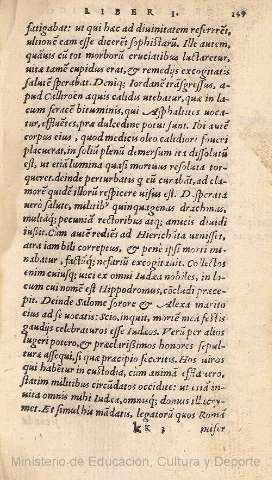 LIBER I. 149
fatigabat: ut qui hæc ad diuinitatem referrēt,
ultionē eam esse dicerēt sophistarū. Ille autem,
quāuis cū tot morborū cruciatibus luctaretur,
uitæ tamē cupidus erat, & remedijs excogitatis
salutē sperabat. Deniq; Iordanē trāsgressus, a-
pud Callirоēn aquis calidis utebatur, quæ in la-
cum feruēt bituminis, qui Asphaltites uoca-
tur, effluētes, præ dulcedine potui sunt. Ibi autē
corpus eius, quod medicis oleo calidiori foueri
placuerat, in soliū plenū demersum ita dissolutū
est, ut etiā lumina quasi mortuus resoluta tor-
queret. deinde perturbatis q̃ eū curabāt, ad cla-
morē quidē illorū respicere uisus est. Desperata
uerò salute, militib' quinquagenas drachmas,
multāq; pecuniā rectoribus atq; amicis diuidi
iussit. Cum autē rediēs ad Hierichūta uenisset,
atra iam bili correptus, & penè ipsi morti mi-
nabatur, factūq; nefariū excogitauit. Collectos
enim cuiusq; uici ex omni Iudæa nobiles, in lo-
cum cui nomē est Hippodromus, cōcludi præce-
pit. Deinde Salome sorore & Alexa marito
eius ad se uocatis: Scio, inquit, mortē meā festis
gaudijs celebraturos esse Iudæos. Verū per alios
lugeri potero, & præclarissimos honores sepul-
turæ assequi, si quæ præcipio feceritis. Hos uiros
qui habētur in custodia, cum animā efflauero,
statim militibus circūdatos occidite: ut etiā in-
uita omnis mihi Iudæa, omniq; domus illacry-
met. Et simul hæc mādatis, legatorū quos Romā
kK 3 miser
Ministerio de Educación, Cultura y Deporte